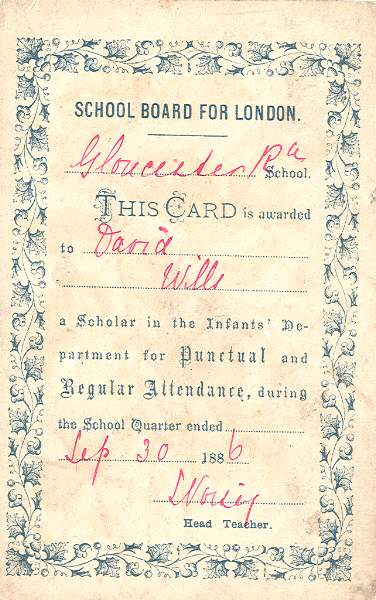 SCHOOL BOARD FOR LONDON.
Gloucester Rd School.
THIS CARD is awarded
to David
Wills
a Scholar in the Infants' De-
partment for Punctual and
Regular Attendance, during
the School Quarter ended
Sep 30 1886
Head Teacher.